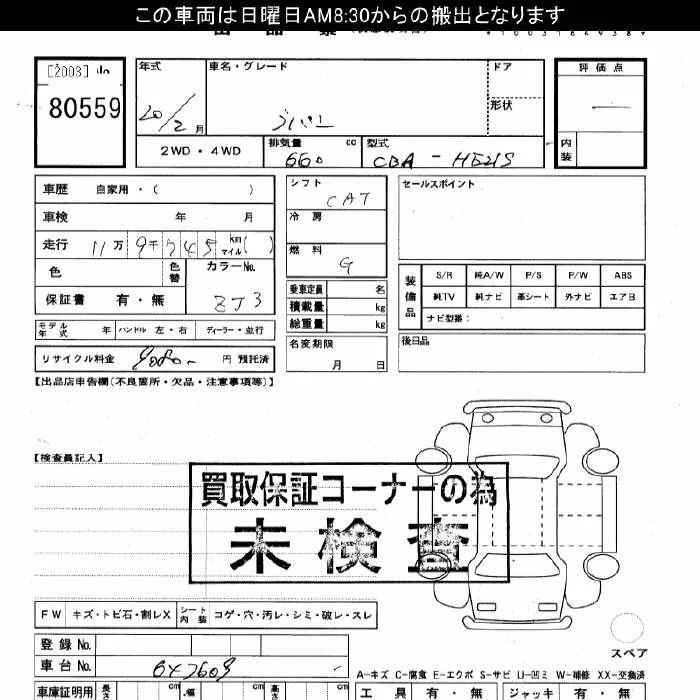 この車両は日曜日AM8:30からの搬出となります
[2003]
80559
年式 車名・グレード ドア 評価点
20/2月 ラパン 形状
2WD・4WD 排気量 660 cc 型式 CBA - HE21S 内装
車歴 自家用・( )
シフト CAT
セールスポイント
車検 年 月
冷房
走行 11万9千745 km マイル( )
燃料 G
色 色替 カラーNo. ZJ3
保証書 有・無
乗車定員 名
積載量 kg
総重量 kg
装備品 S/R 純A/W P/S P/W ABS
純TV 純ナビ 革シート 外ナビ エアB
ナビ型番:
モデル年式 年 ハンドル 左・右 ディーラー・並行
名変期限 月 日
後日品
リサイクル料金 円 預託済
【出品店申告欄(不良箇所・欠品・注意事項等)】
【検査員記入】
買取保証コーナーの為
未検査
FW キズ・トビ石・割レX シート内装 コゲ・穴・汚レ・シミ・破レ・スレ
登録No.
スペア
車台No.
A-キズ C-腐食 E-エクボ S-サビ U-凹ミ W-補修 XX-交換済
車庫証明用 長さ cm 幅 cm 高さ cm 工具 有・無 ジャッキ 有・無